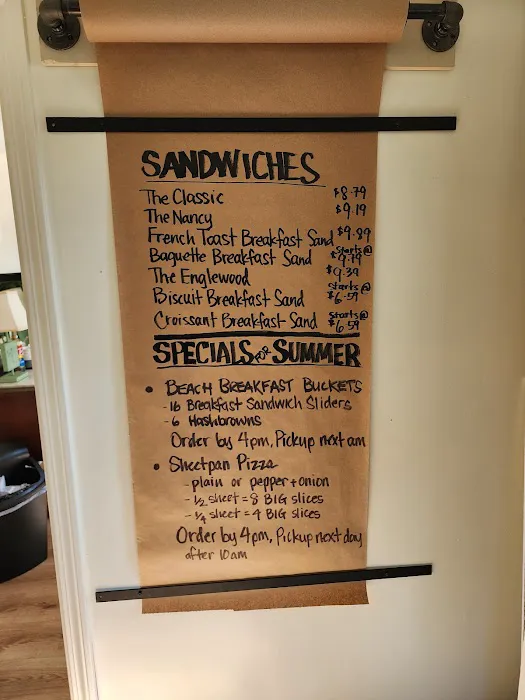 SANDWICHES
The Classic $8.79
The Nancy $9.19
French Toast Breakfast Sand $9.89
Baguette Breakfast Sand starts @ $9.79
The Englewood $9.39
Biscuit Breakfast Sand starts @ $6.59
Croissant Breakfast Sand starts @ $6.59
SPECIALS FOR SUMMER
• BEACH BREAKFAST BUCKETS
-16 Breakfast Sandwich Sliders
-6 Hashbrowns
Order by 4pm, Pickup next am
• Sheetpan Pizza
-plain or pepper+onion
-1/2 sheet = 8 BIG slices
-1/4 sheet = 4 BIG slices
Order by 4pm, Pickup next day
after 10am